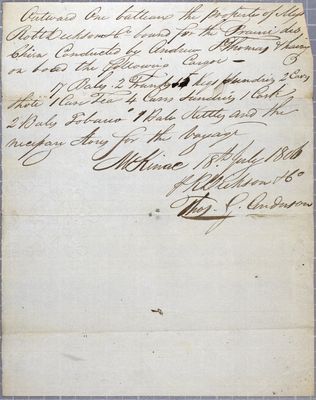 Outward One batteau the property of Mess
Robt Dickson & Co bound for the Prairie des
Chin Conducted by Andrew Thomas & having
on board the following Cargo —
17 Bales 2 Trunks Kegs Sundries 2 Cases
1 Case Tea 4 Cases Sundries Cask
2 Bales Tobacco 1 Bale Kettles and the
necessary stores for the Voyage
McKinac 18th July 1806
JR Dickson & Co
Thos. G. Anderson